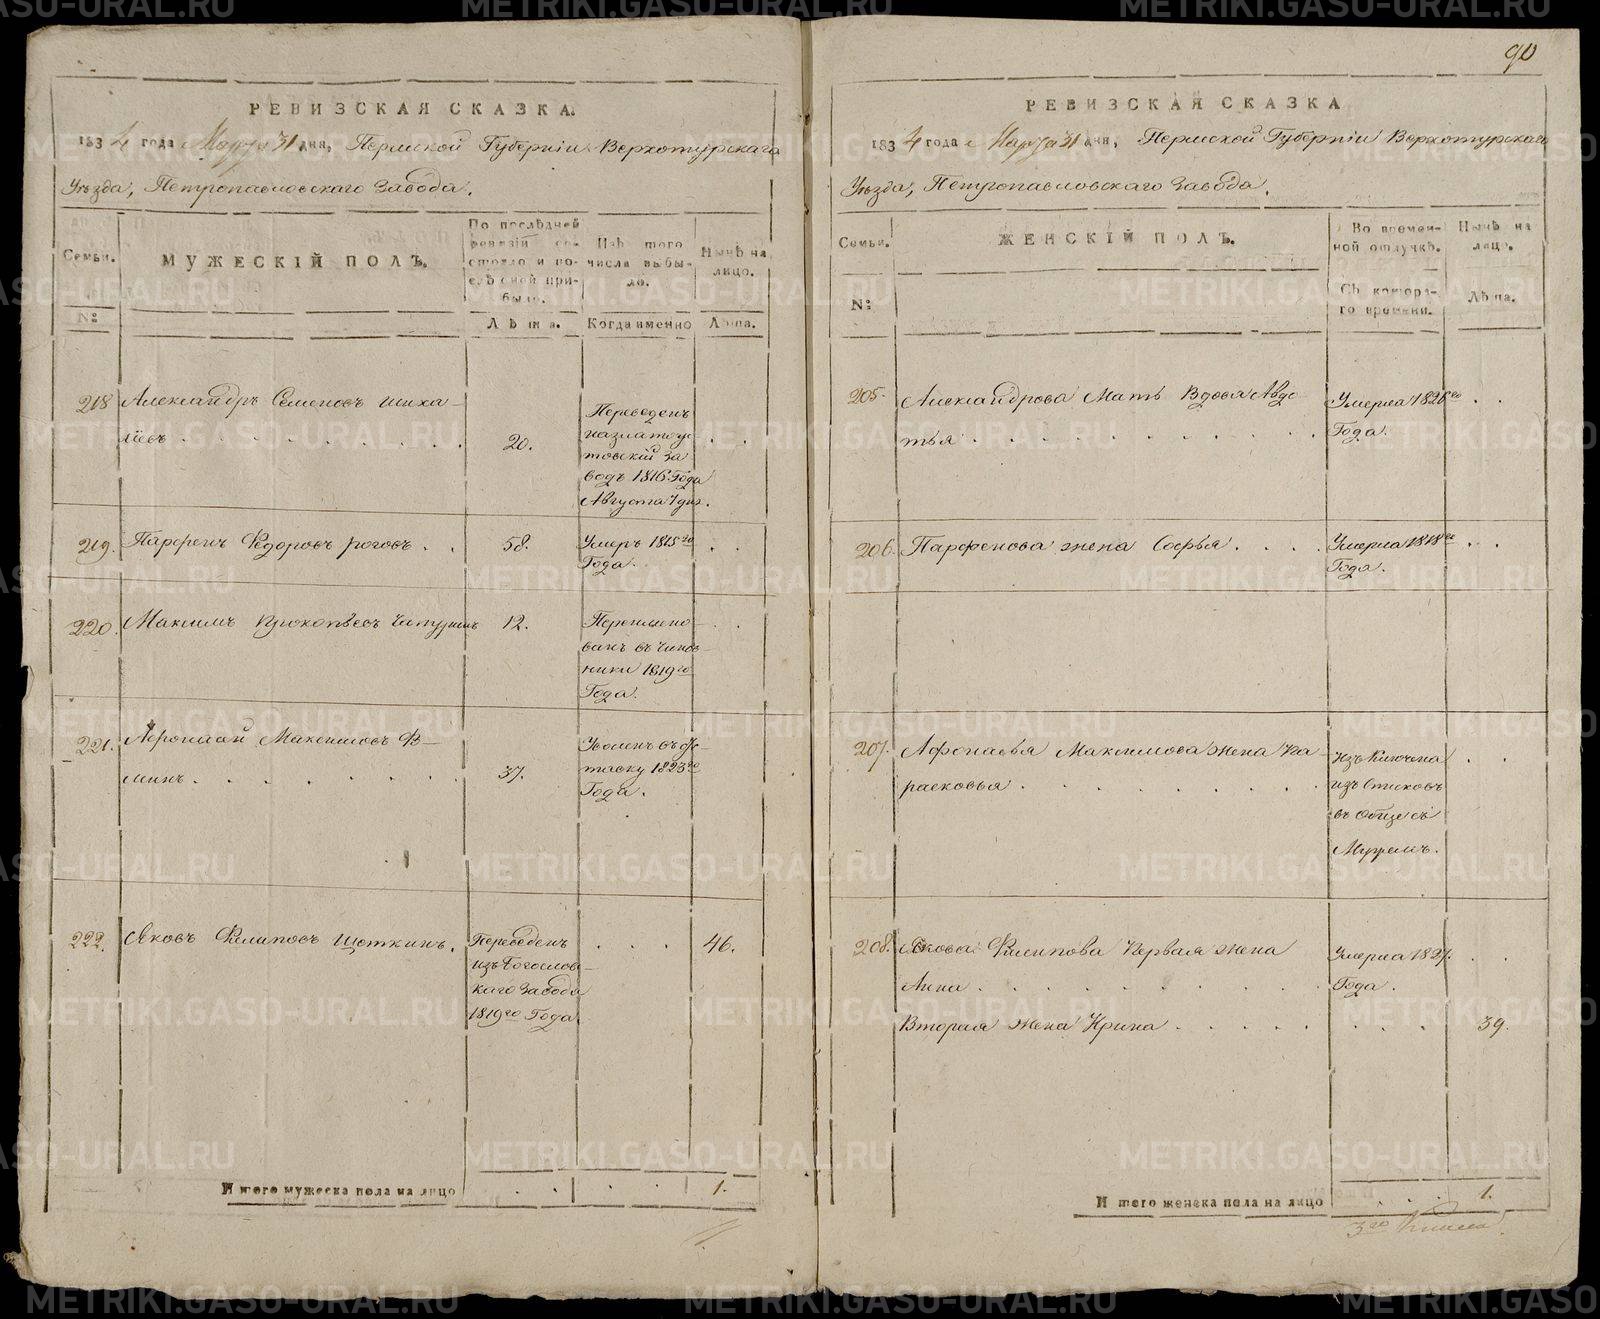 РЕВИЗСКАЯ СКАЗКА.
1834 года Марта 31 дня, Пермской Губерніи Верхотурскаго
Уѣзда, Петропавловскаго Завода.
Семьи.
№
МУЖЕСКІЙ ПОЛЪ.
По послѣдней
ревизіи со-
стояло и по-
слѣ оной при-
было.
Лѣта.
Изъ того
числа выбы-
ло.
Когда именно
Нынѣ на
лицо.
Лѣта.
218 Александръ Семеновъ Шиха-
20.
Переведенъ
назлатоус-
товскій за
водъ 1816. Года
Августа 1 дня.
219. Парфенъ Ѳедоровъ Роговъ . .
58.
Умеръ 1815го
Года.
220. Максимъ Прокопьевъ
12.
Переимено-
ванъ въ чинов-
ники 1819го
Года.
221. Афонасій Максимовъ Ѳ-
минъ.
37.
Уволенъ въ от-
тавку 1823го
Года.
222. Яковъ Филиповъ Щеткинъ.
Переведенъ
изъ Богословс-
каго завода
1819го Года.
46.
Итого мужеска пола на лицо
1.
90
РЕВИЗСКАЯ СКАЗКА
1834 года Марта 31 дня, Пермской Губерніи Верхотурскаго
Уѣзда, Петропавловскаго Завода.
Семьи.
№
ЖЕНСКІЙ ПОЛЪ.
Во времен-
ной отлучкѣ.
Съ котора-
го времени.
Нынѣ на
лицо.
Лѣта.
205. Александрова Мать Вдова Авдо-
тья
Умерла 1826го
Года.
206. Парфенова жена Софья.
Умерла 1818го
Года.
207. Афонасья Максимова жена Па-
расковья
Изъключена
изъ Списковъ
въ обще съ
Мужемъ.
208. Якова Филипова Первая жена
Анна
Умерла 1827.
Года.
Вторая жена Ирина
39.
Итого женска пола на лицо
1.
3го
METRIKI.GASO-URAL.RU